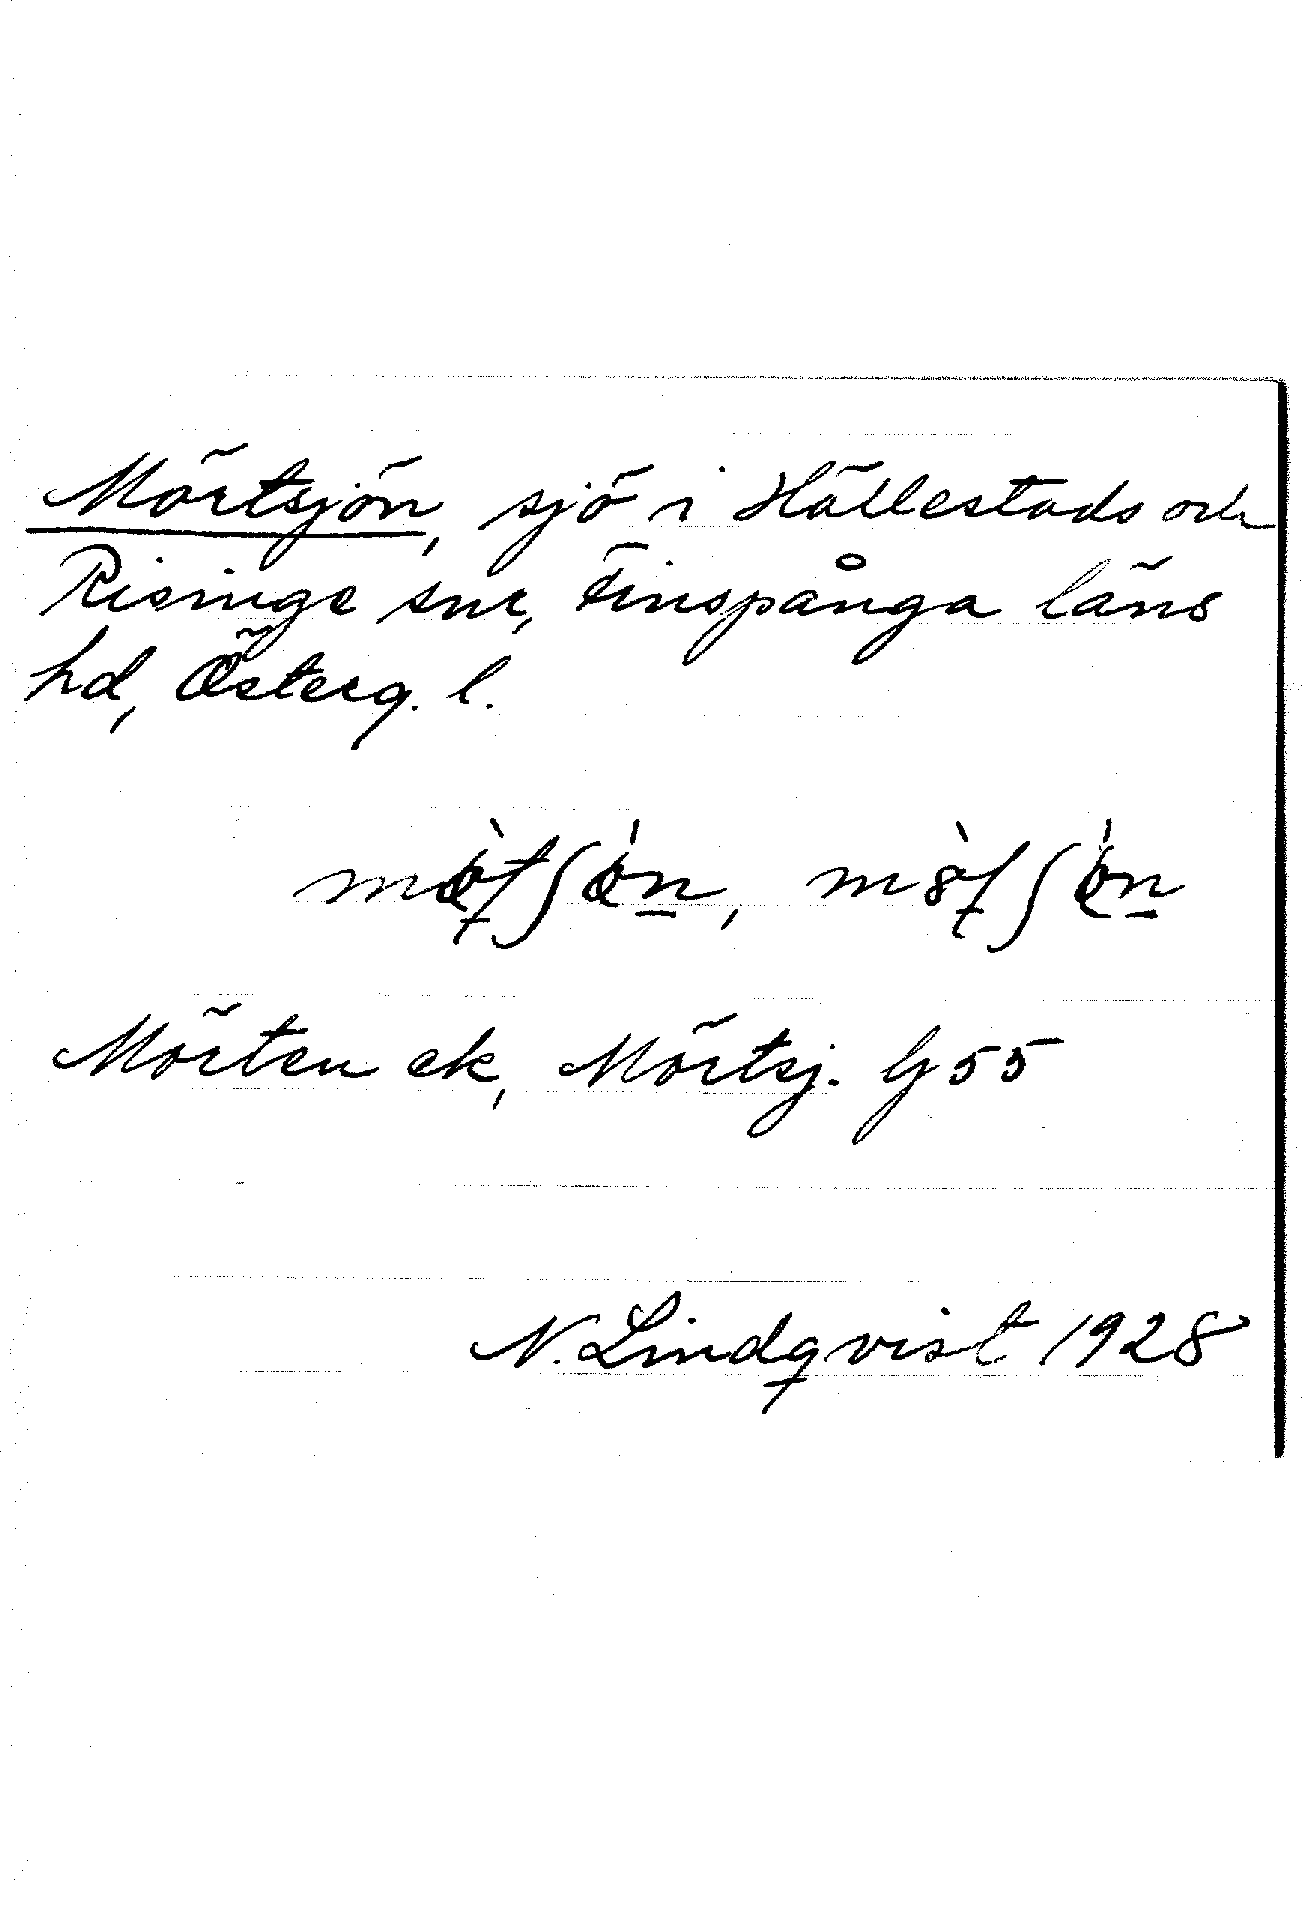 Mörtsjön, sjö i Hällestads och
Risinge snr, Finspånga läns
hd, Österg. l.
Mörten ek, Mörtsj. G 55
N. Lindqvist 1928